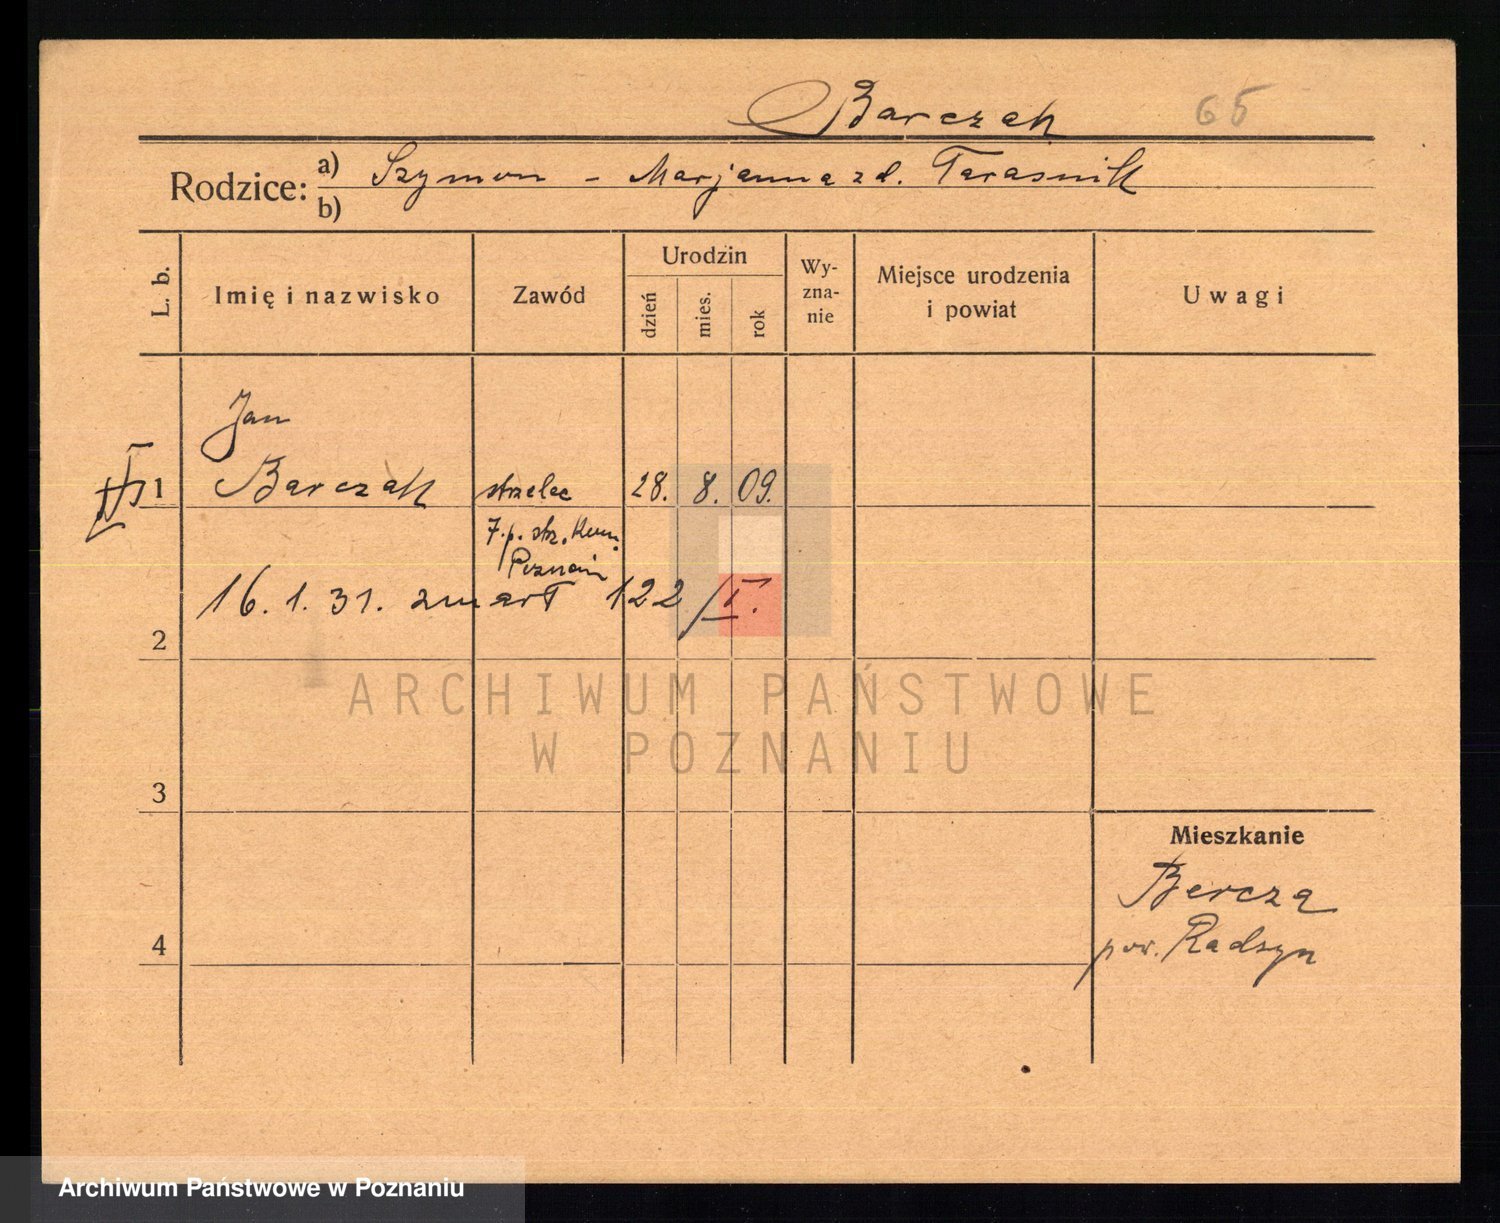 Barczak 65
Rodzice: a) Szymon - Marjanna z d. Tarasnik
b)
L. b.
Imię i nazwisko
Zawód
Urodzin
dzień
mies.
rok
Wy-
zna-
nie
Miejsce urodzenia
i powiat
Uwagi
Jan
1 Barczak strzelec 28. 8. 09.
7. p. str. Kon.
Poznań
16. 1. 31. zmarł 122/I.
2
ARCHIWUM PAŃSTWOWE
W POZNANIU
3
Mieszkanie
Bercza
4
pow. Radzyn
Archiwum Państwowe w Poznaniu